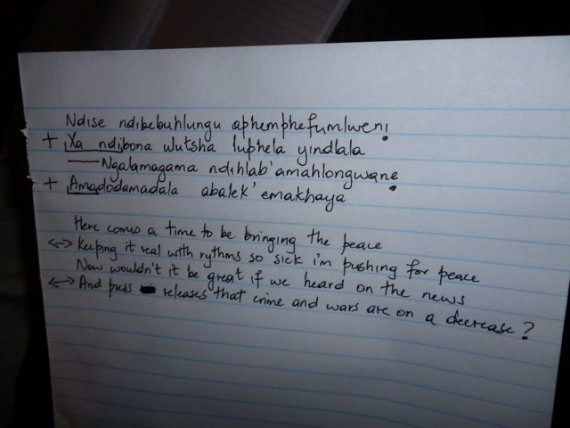 Ndise ndibebuhlungu aphemphefumlweni
+ Xa ndibona ulutsha luphela yindlala
Ngalamagama ndihlab'amahlongwane
+ Amadodamadala abalek'emakhaya
Here comes a time to be bringing the peace
<-> Keeping it real with rythms so sick i'm pushing for peace
Now wouldn't it be great if we heard on the news
<-> And press releases that crime and wars are on a decrease?